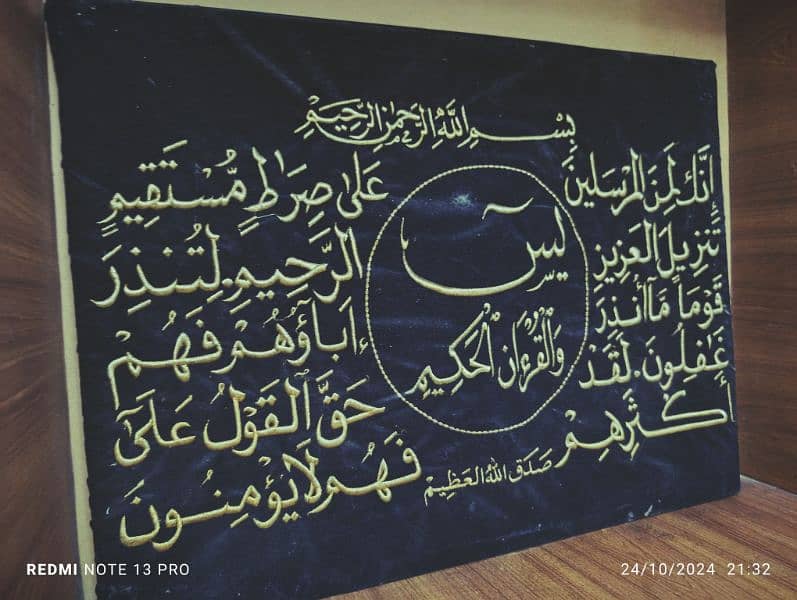 بِسْمِ اللَّهِ الرَّحْمَٰنِ الرَّحِيمِ
يسٓ
وَالْقُرْءَانِ الْحَكِيمِ
إِنَّكَ لَمِنَ الْمُرْسَلِينَ عَلَىٰ صِرَٰطٍ مُّسْتَقِيمٍ
تَنزِيلَ الْعَزِيزِ الرَّحِيمِ. لِتُنذِرَ
قَوْمًا مَّآ أُنذِرَ ءَابَاؤُهُمْ فَهُمْ
غَٰفِلُونَ. لَقَدْ حَقَّ الْقَوْلُ عَلَىٰٓ
أَكْثَرِهِمْ فَهُمْ لَا يُؤْمِنُونَ
صَدَقَ اللهُ العَظِيمْ
REDMI NOTE 13 PRO
24/10/2024 21:32